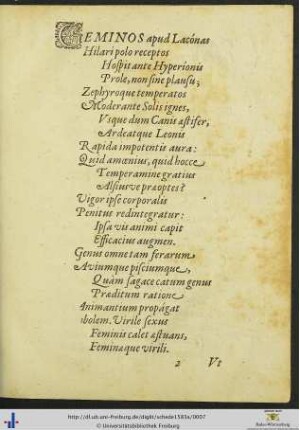 GEMINOS apud Lacónas
Hilari polo receptos
Hospitante Hyperionis
Prole, non sine plausu;
Zephyroque temperatos
Moderante Solis ignes,
Vsque dum Canis æstifer,
Ardeatque Leonis
Rapida impotentis aura:
Quid amœnius, quid hocce
Temperamine gratius
Alsiusve præoptes?
Vigor ipse corporalis
Penitus redintegratur:
Ipsa vis animi capit
Efficacius augmen.
Genus omne tam ferarum
Aviumque pisciumque,
Quàm sagace catum genus
Præditum ratione
Animantium propagat
obolem. Virile sexus
Femineis calet æstuans,
Femineæque virili.
2 Vt
http://dl.ub.uni-freiburg.de/diglit/schede1593a/0007
© Universitätsbibliothek Freiburg
Baden-Württemberg